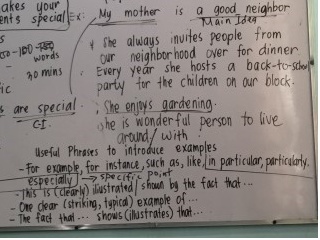 akes your
ent's special Ex:
My mother is a good neighbor
Main Idea
words
30 mins
are special
C.I.
* She always invites people from
our neighborhood over for dinner
* Every year she hosts a back-to-school
party for the children on our block.
She enjoys gardening.
She is wonderful person to live
around/with
Useful Phrases to introduce examples
- For example, for instance, such as, like, in particular, particularly.
especially → specific point
- This is (clearly) illustrated/shown by the fact that ...
- One clear (striking, typical) example of ...
- The fact that ... shows (illustrates) that ...